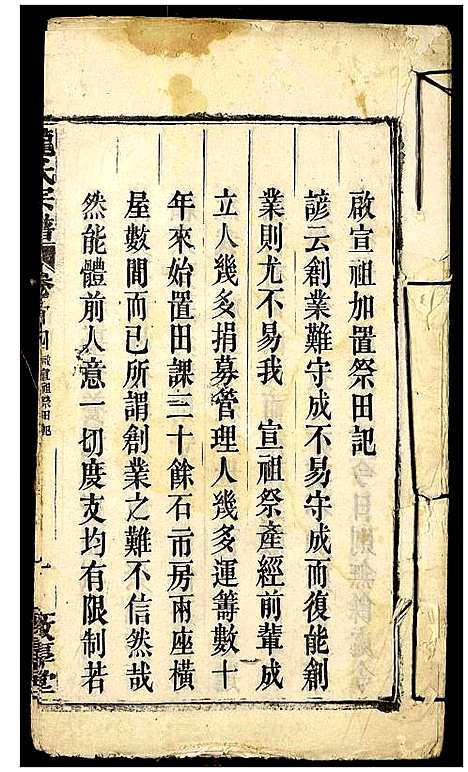 啟宣祖加置祭田記
諺云創業難守成不易守成而復能創
業則尤不易我 宣祖祭產經前輩成
立人幾多捐募管理人幾多運籌數十
年來始置田課三十餘石市房兩座橫
屋數間而已所謂創業之難不信然哉
然能體前人意一切度支均有限制若
氏宗譜 卷首四 啟宣祖祭田記 堂